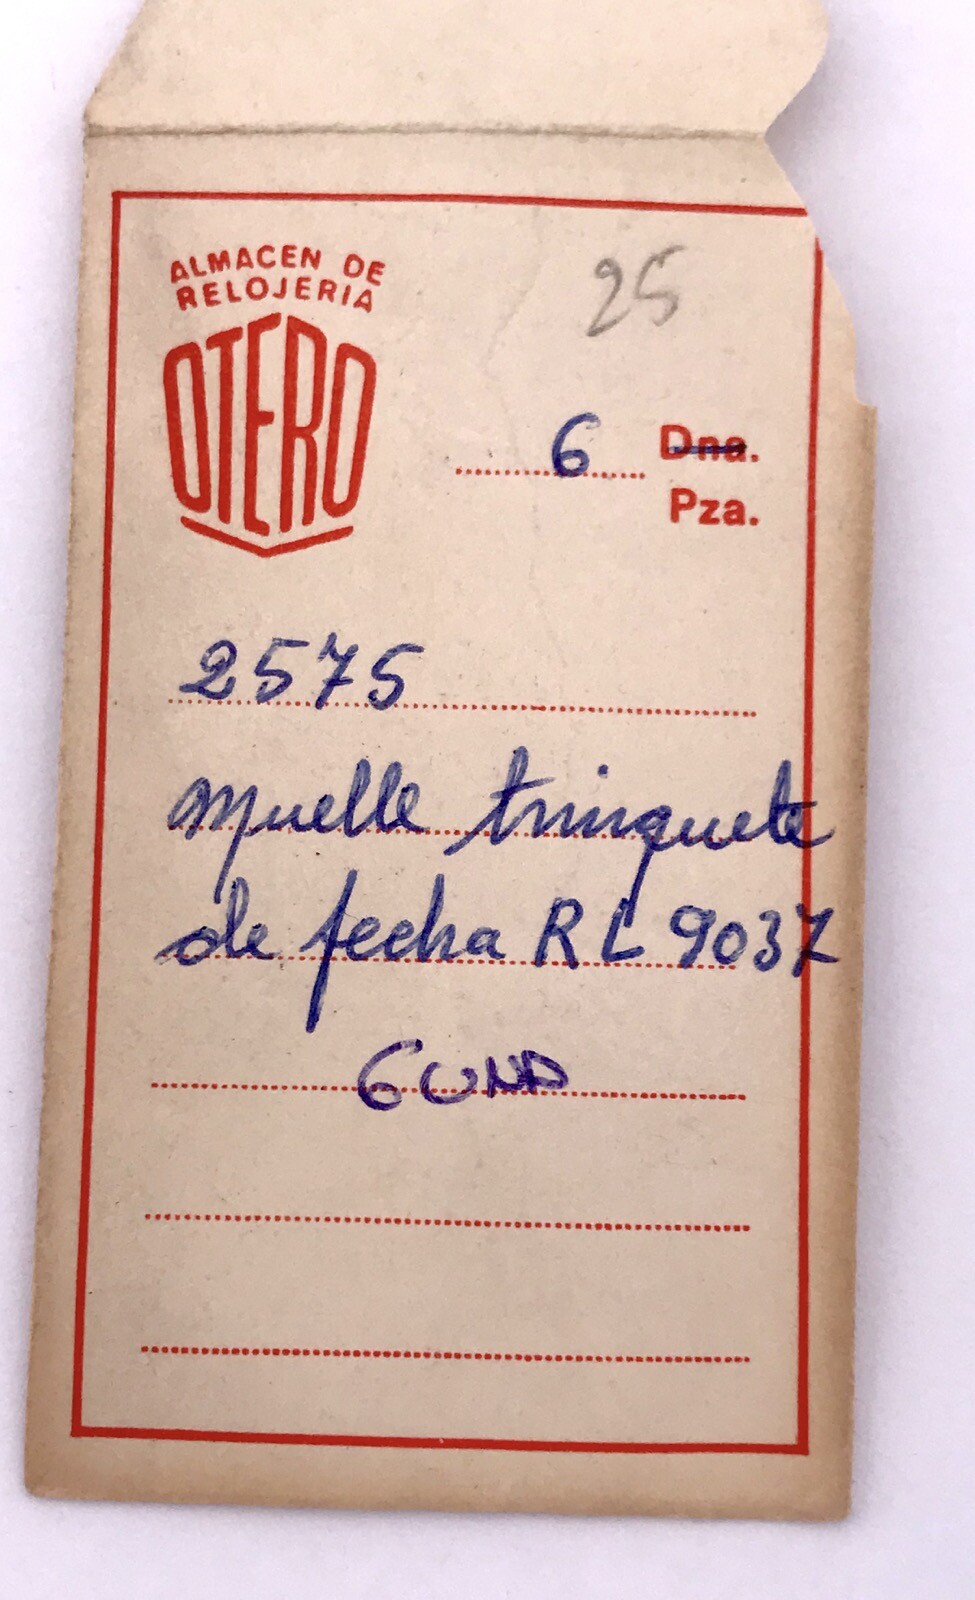 ALMACEN DE
RELOJERIA
OTERO
25
6 Dna.
Pza.
2575
muelle trinquete
de fecha RL 9037
6 UND